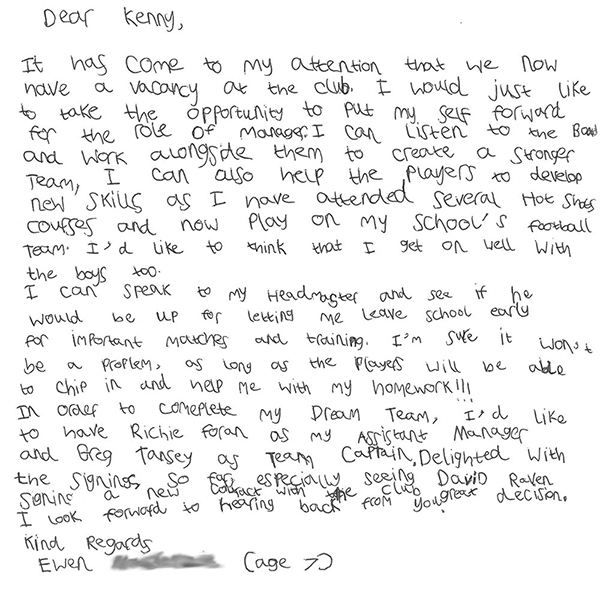 Dear Kenny,
It has come to my attention that we now
have a vacancy at the club. I would just like
to take the opportunity to put my self forward
for the role of manager. I can listen to the Board
and work alongside them to create a stronger
Team, I can also help the players to develop
new skills as I have attended several Hot Shots
courses and now play on my school's football
team. I'd like to think that I get on well with
the boys too.
I can speak to my Headmaster and see if he
would be up for letting me leave school early
for important matches and training. I'm sure it won't
be a problem, as long as the players will be able
to chip in and help me with my homework!!!
In order to comeplete my Dream Team, I'd like
to have Richie foran as my Assistant Manager
and Greg Tansey as Team Captain. Delighted with
the signings, so far, especially seeing David Raven
signing a new contract with the club, great decision.
I look forward to hearing back from you.
Kind Regards
Ewen (age 7)